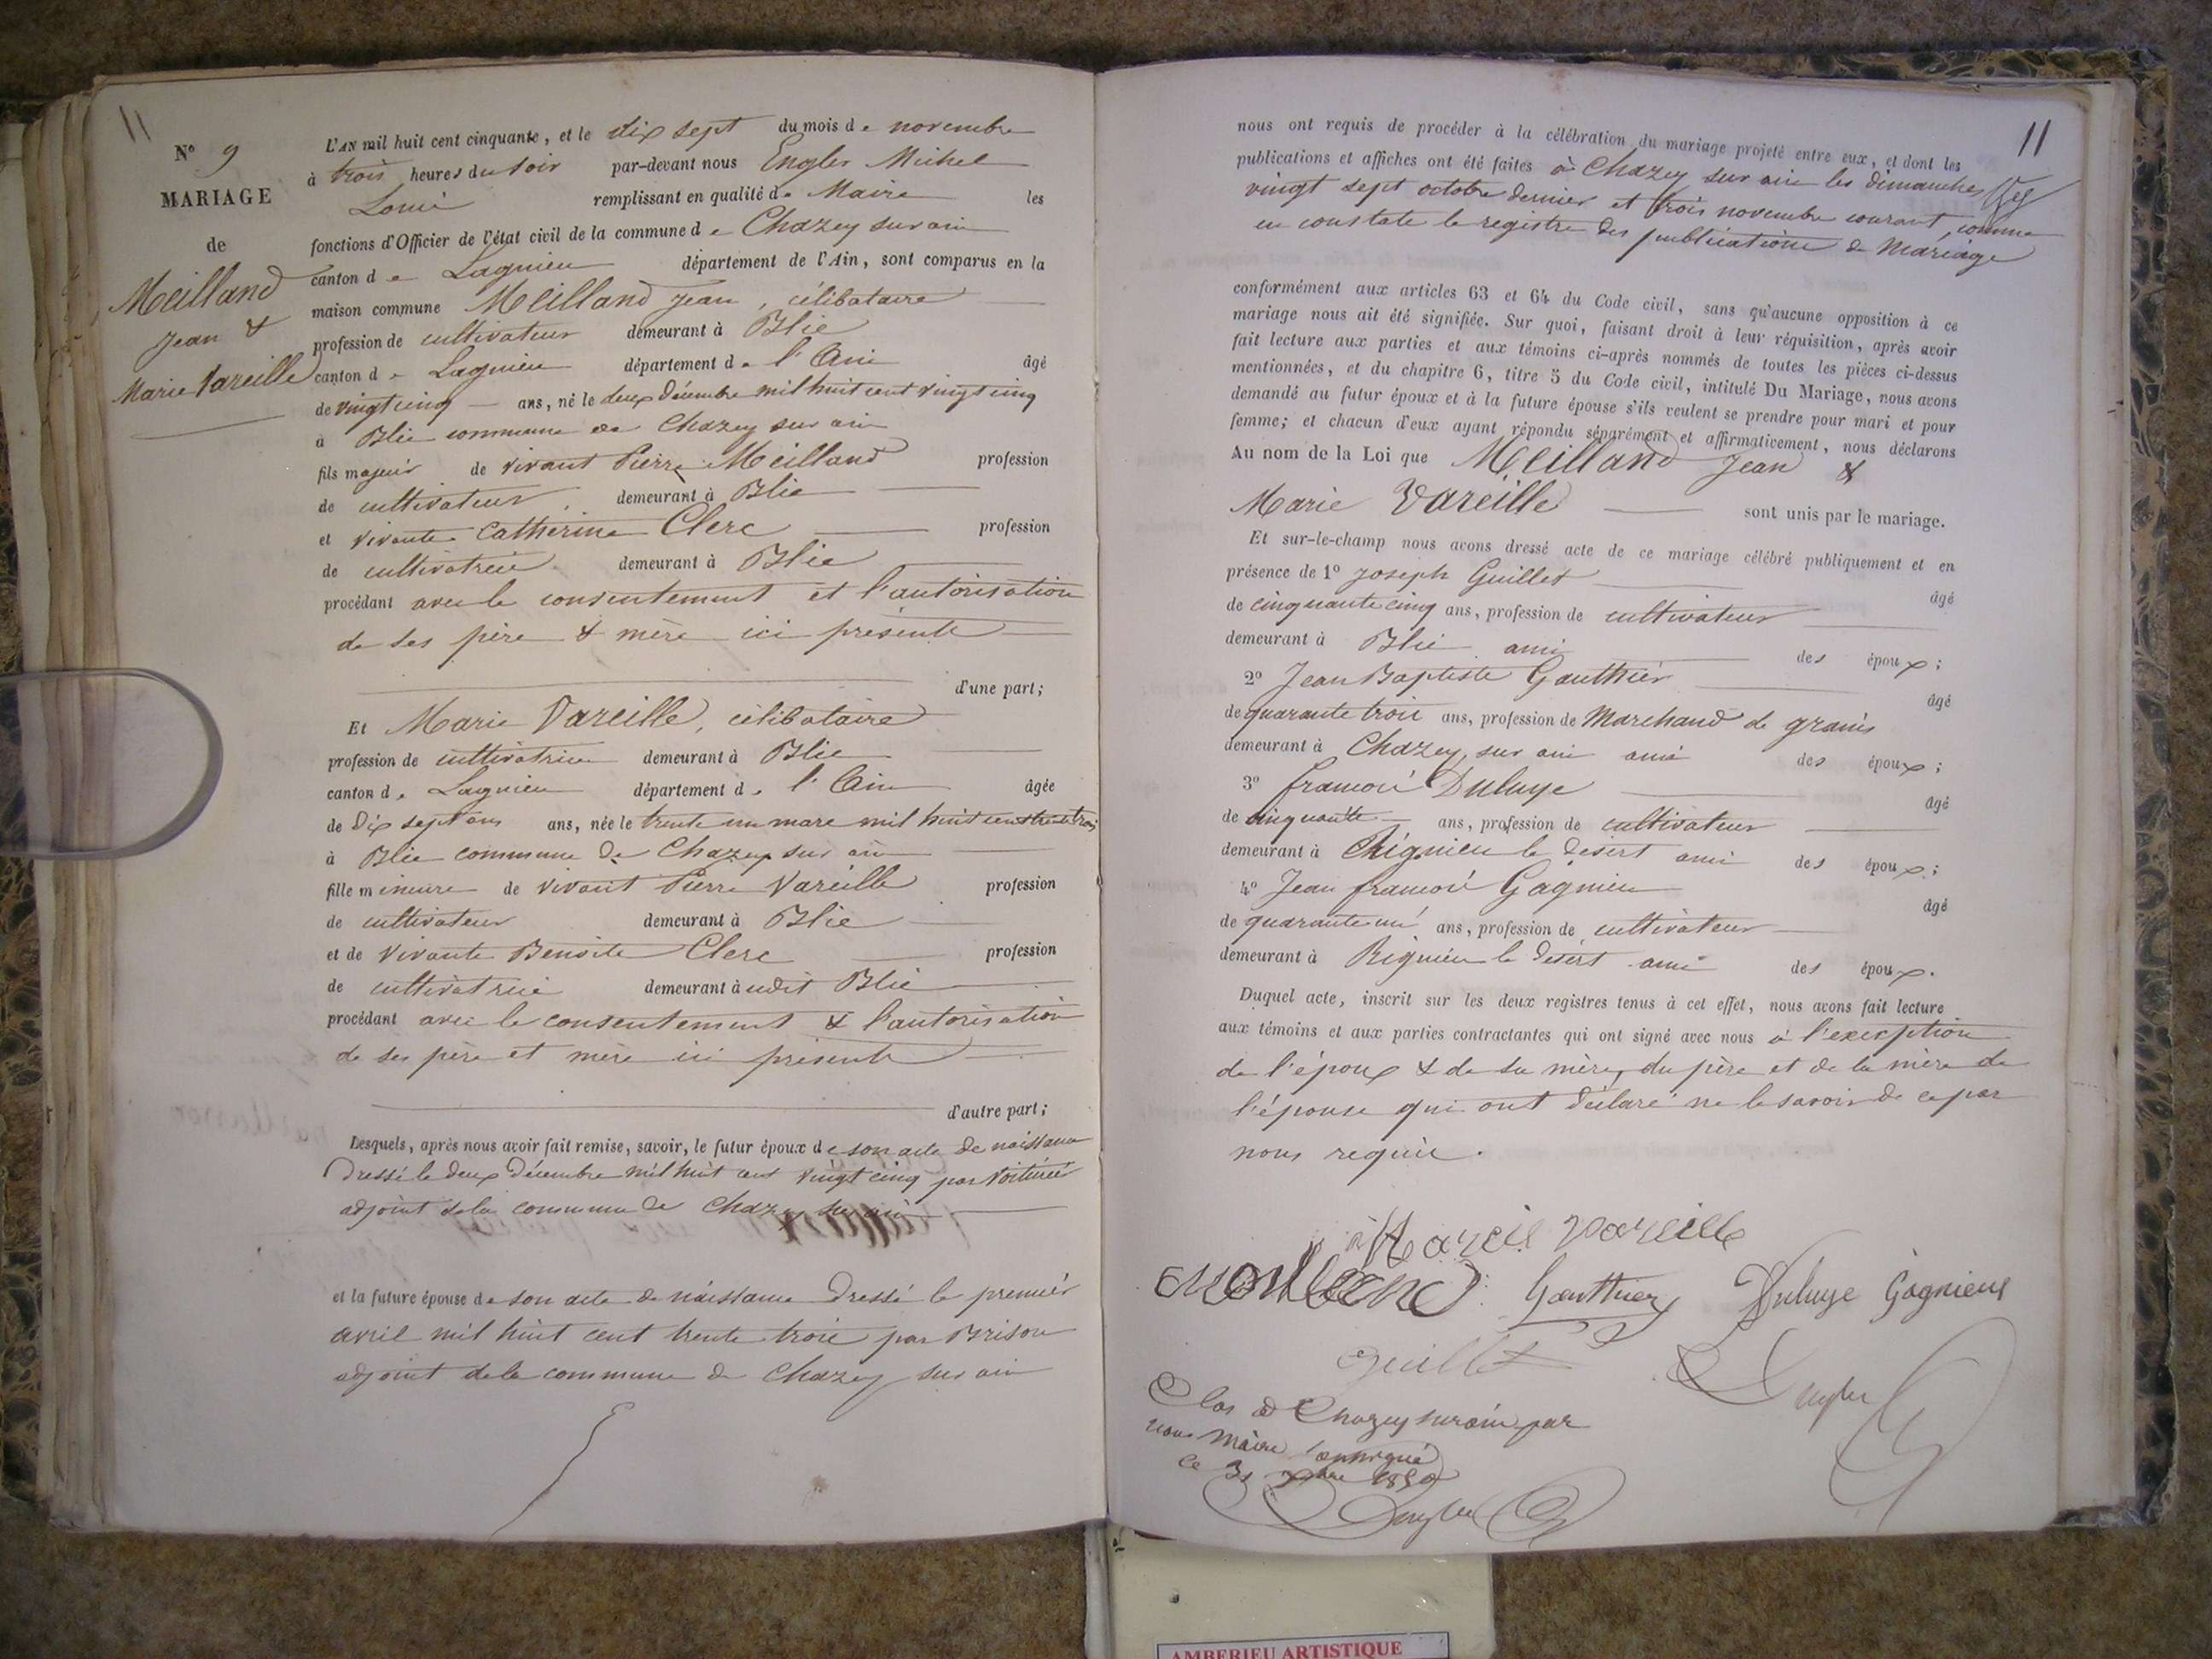 11
N° 9
MARIAGE
de
Meilland
Jean &
Marie Vareille
L'AN mil huit cent cinquante, et le dix sept du mois de novembre
à trois heures du soir par-devant nous Engler Michel
Louis remplissant en qualité de Maire les
fonctions d'Officier de l'état civil de la commune de Chazey sur ain
canton de Lagnieu département de l'Ain, sont comparus en la
maison commune Meilland Jean, célibataire
profession de cultivateur demeurant à Blie
canton de Lagnieu département de l'Ain âgé
de vingt cinq ans, né le deux Décembre mil huit cent vingt cinq
à Blie commune de Chazey sur ain
fils majeur de vivant Pierre Meilland profession
de cultivateur, demeurant à Blie
et vivante Catherine Clerc profession
de cultivatrice demeurant à Blie
procédant avec le consentement et l'autorisation
de ses père & mère ici présents
d'une part;
Et Marie Vareille, célibataire
profession de cultivatrice demeurant à Blie
canton de Lagnieu département de l'Ain âgée
de Dix sept ans ans, née le trente un mars mil huit cent trente trois
à Blie commune de Chazey sur ain
fille mineure de vivant Pierre Vareille profession
de cultivateur demeurant à Blie
et de vivante Benoite Clerc profession
de cultivatrice demeurant à udit Blie
procédant avec le consentement & l'autorisation
de ses père et mère ici présents
d'autre part;
Lesquels, après nous avoir fait remise, savoir, le futur époux de son acte de naissance
Dressé le deux Décembre mil huit cent vingt cinq par
adjoint de la commune de Chazey sur ain
et la future épouse de son acte de naissance Dressé le premier
avril mil huit cent trente trois par Brison
adjoint de la commune de Chazey sur ain
11
nous ont requis de procéder à la célébration du mariage projeté entre eux, et dont les
publications et affiches ont été faites à Chazey sur ain les dimanches
vingt sept octobre dernier et trois novembre courant, comme
en constate le registre des publications de Mariage
conformément aux articles 63 et 64 du Code civil, sans qu'aucune opposition à ce
mariage nous ait été signifiée. Sur quoi, faisant droit à leur réquisition, après avoir
fait lecture aux parties et aux témoins ci-après nommés de toutes les pièces ci-dessus
mentionnées, et du chapitre 6, titre 5 du Code civil, intitulé Du Mariage, nous avons
demandé au futur époux et à la future épouse s'ils veulent se prendre pour mari et pour
femme; et chacun d'eux ayant répondu séparément et affirmativement, nous déclarons
Au nom de la Loi que Meilland Jean &
Marie Vareille sont unis par le mariage.
Et sur-le-champ nous avons dressé acte de ce mariage célébré publiquement et en
présence de 1° Joseph Guillet âgé
de cinquante cinq ans, profession de cultivateur
demeurant à Blie ami des époux;
2° Jean Baptiste Gauthier âgé
de quarante trois ans, profession de Marchand de grains
demeurant à Chazey sur ain ami des époux;
3° francois Duluye âgé
de cinquante ans, profession de cultivateur
demeurant à Rignieu le désert ami des époux;
4° Jean francois Gagnieu âgé
de quarante un ans, profession de cultivateur
demeurant à Rignieu le désert ami des époux.
Duquel acte, inscrit sur les deux registres tenus à cet effet, nous avons fait lecture
aux témoins et aux parties contractantes qui ont signé avec nous à l'exception
de l'époux & de sa mère, du père et de la mère de
l'épouse qui ont déclaré ne le savoir de ce par
nous requis.
Marie vareille
Gautthier Duluye Gagnieux
guillet Engler
Clos à Chazey sur ain par
nous Maire soussigné
ce 31 Xbre 1850
Engler
AMBERIEU ARTISTIQUE